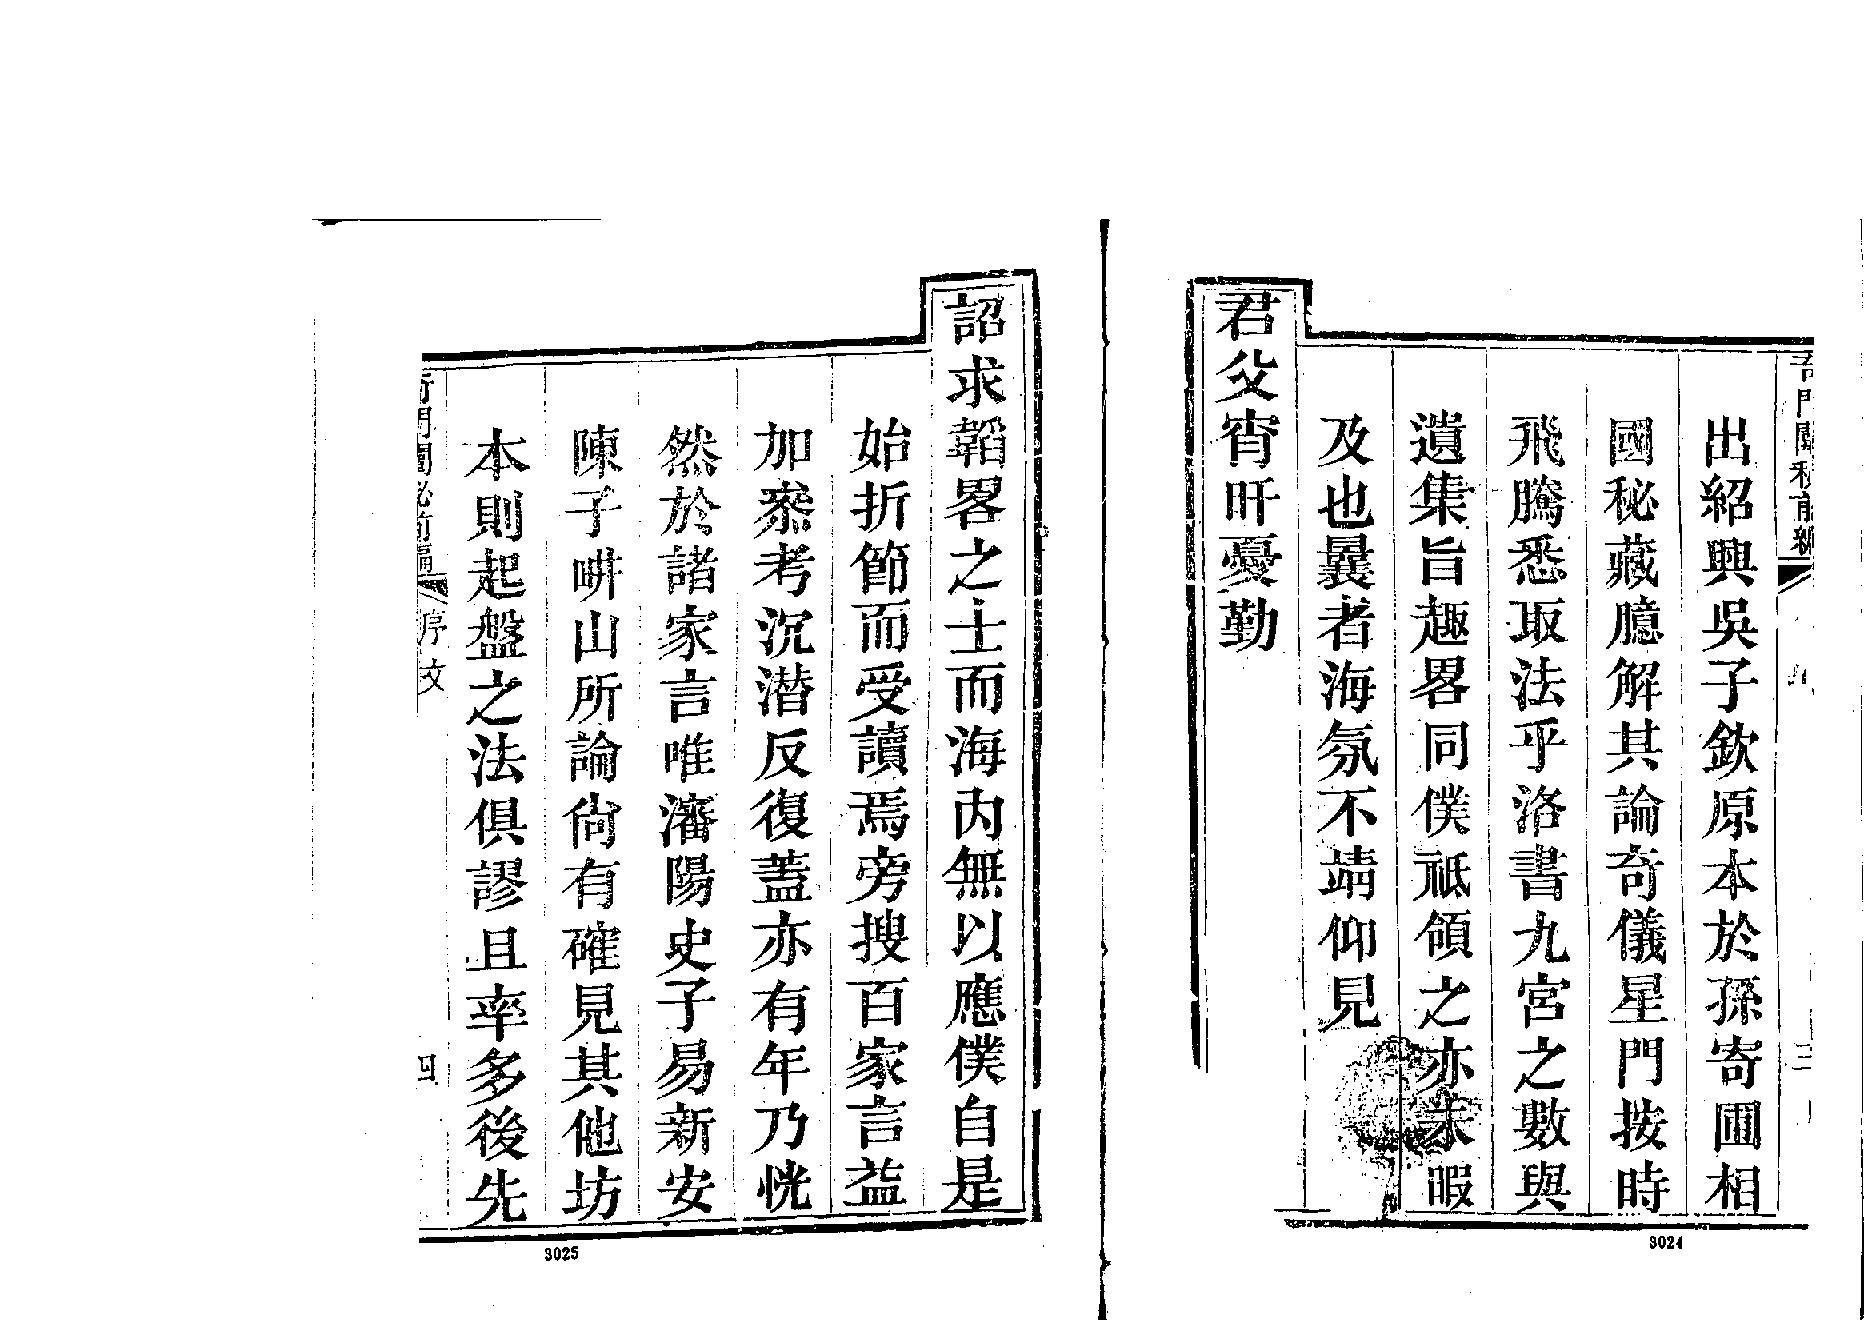 奇門闡秘前編
三
出紹興吳子欽原本於孫寄圃相
國秘藏臆解其論奇儀星門按時
飛騰悉取法乎洛書九宮之數與
遺集旨趣畧同僕祗領之亦未暇
及也曩者海氛不靖仰見
君父宵旰憂勤
3024
詔求韜畧之士而海內無以應僕自是
始折節而受讀焉旁搜百家言益
加叅考沉潛反復蓋亦有年乃恍
然於諸家言唯瀋陽史子易新安
陳子畊山所論尙有確見其他坊
本則起盤之法俱謬且率多後先
奇門闡秘前編
序文
四
3025